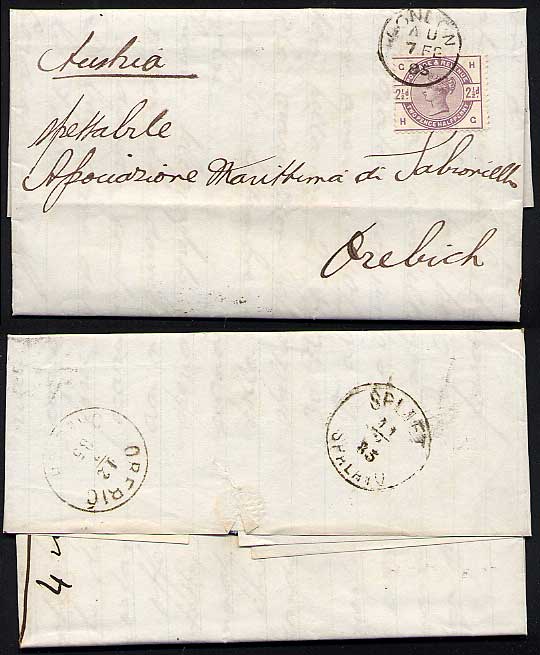 LONDON
AU
7 FE
85
POSTAGE & REVENUE
G H
2½d 2½d
TWO PENCE HALFPENNY
H G
Austria
Spettabile
Associazione Marittima di Sabioncello
Orebich
SPLJET
11
85
SPALATO
OREBIĆ
12
85
4